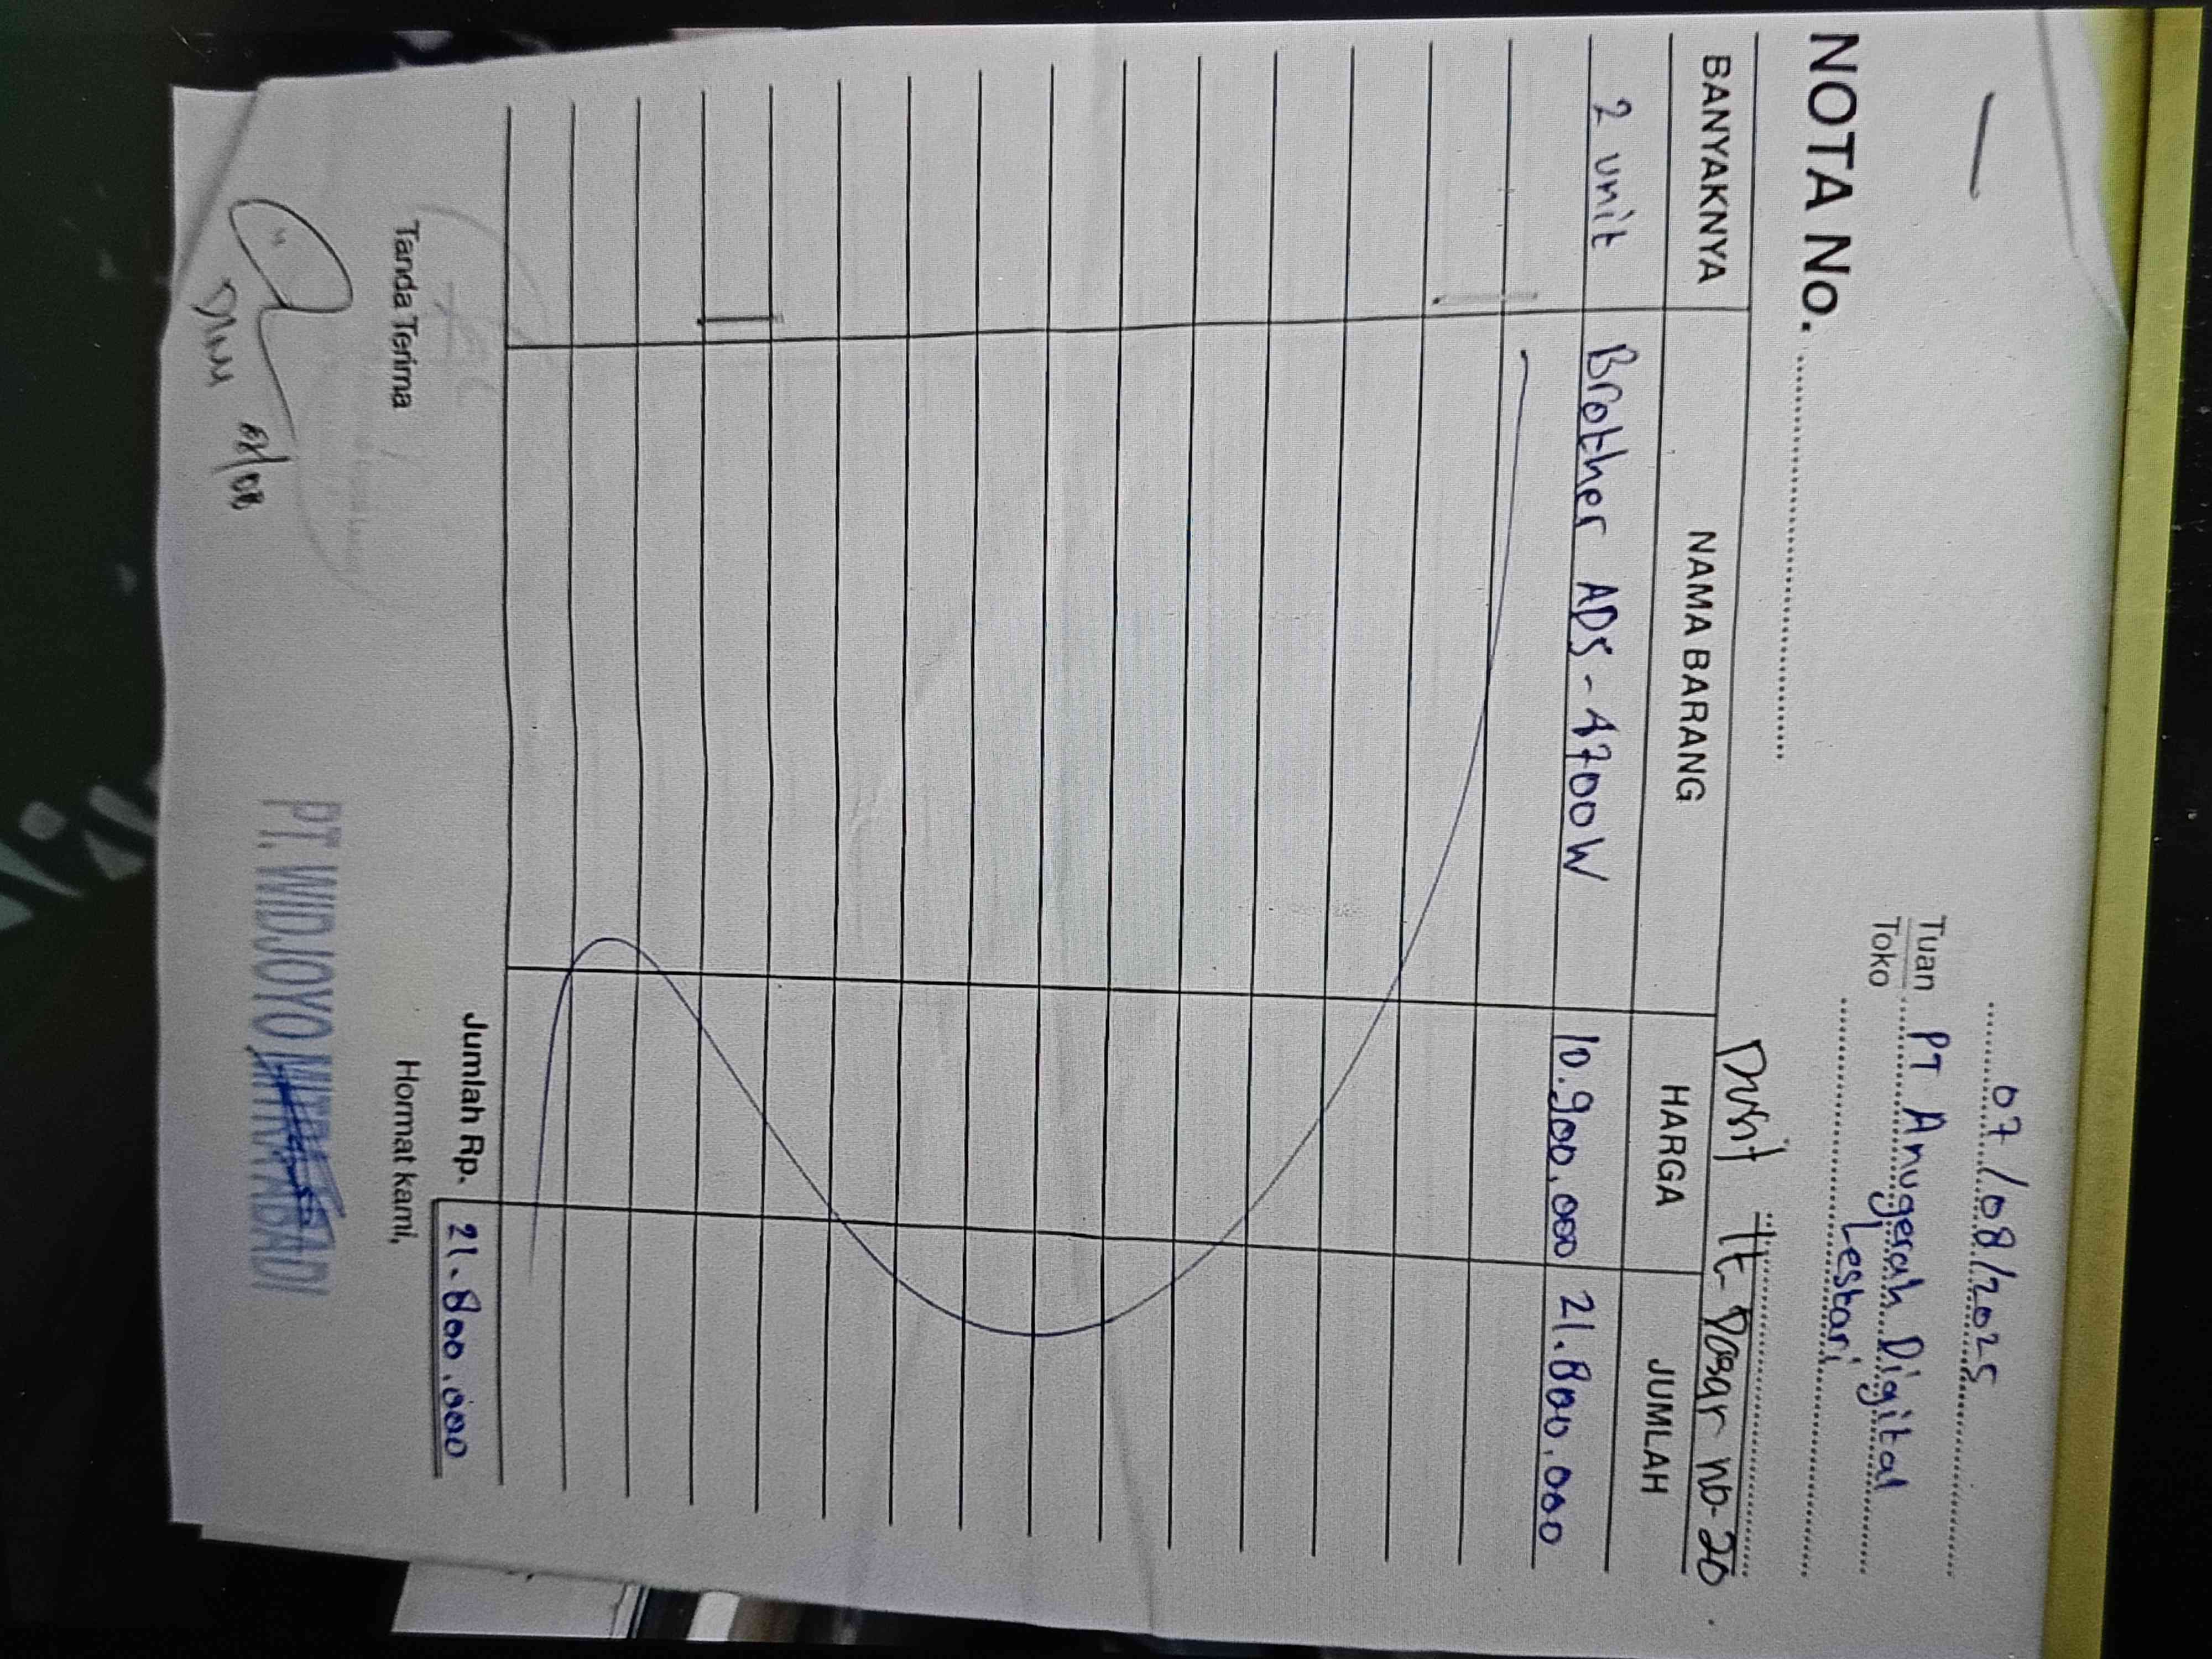 07/08/2025
Tuan PT Anugerah Digital
Toko Lestari
NOTA No.
lt. Dasar no. 20.
BANYAKNYA NAMA BARANG HARGA JUMLAH
2 unit Brother ADS-4700W 10.900.000 21.800.000
Jumlah Rp. 21.800.000
Tanda Terima Hormat kami,
PT. WIDJOYO MITRA ABADI